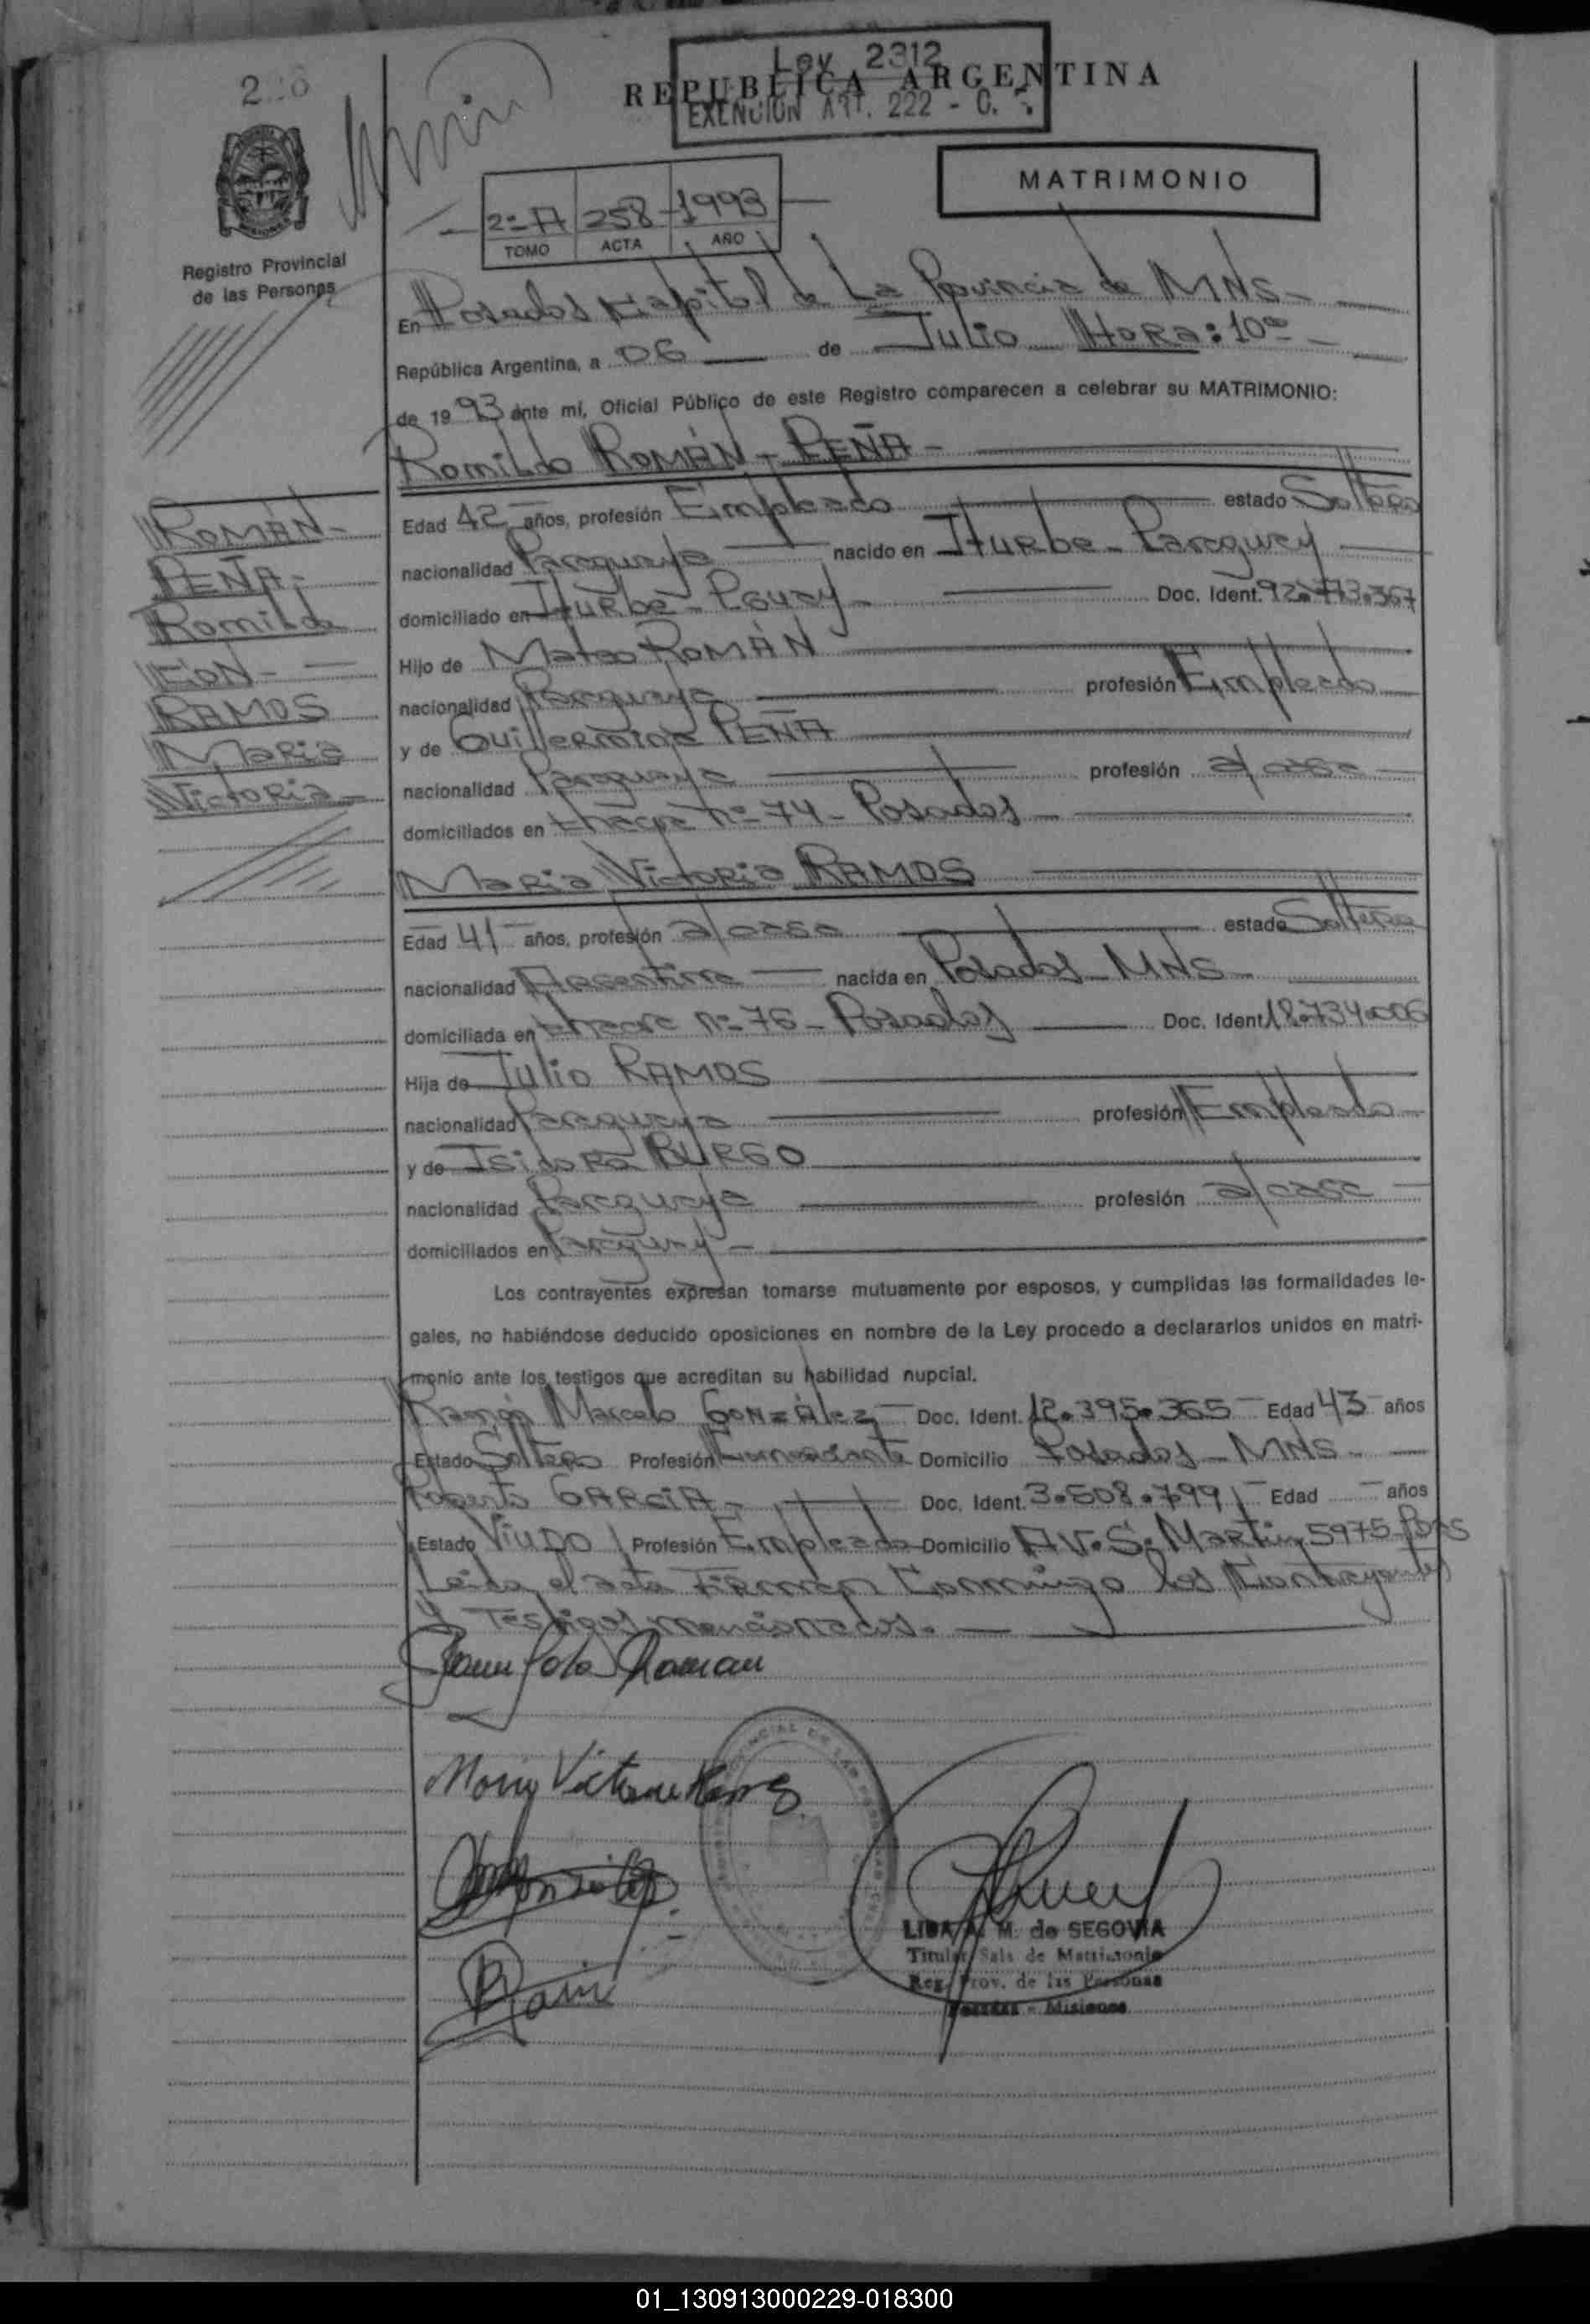 Ley 2312
REPUBLICA ARGENTINA
EXENCION ART. 222 - C.
MATRIMONIO
2º A 258 - 1993
TOMO ACTA AÑO
Registro Provincial
de las Personas
En Posadas Kapital de La Provincia de MNS-
República Argentina, a 06 de Julio Hora: 10ºº
de 1993 ante mí, Oficial Público de este Registro comparecen a celebrar su MATRIMONIO:
Romildo ROMÁN - PEÑA -
ROMÁN-
PEÑA-
Romildo
KON-
RAMOS
Maria
Victoria-
Edad 42 años, profesión Empleado estado Soltero
nacionalidad Paraguaya nacido en Iturbe - Paraguay
domiciliado en Iturbe - Pguay - Doc. Ident. 92.773.367
Hijo de Mateo ROMÁN
nacionalidad Paraguaya profesión Empleado
y de Guillermina PEÑA
nacionalidad Paraguaya profesión a/casa
domiciliados en Nº 74 - Posadas
Maria Victoria RAMOS
Edad 41 años, profesión a/casa estado Soltera
nacionalidad Argentina nacida en Posadas - MNS
domiciliada en Nº 76 - Posadas Doc. Ident. 18.734.006
Hija de Julio RAMOS
nacionalidad Paraguaya profesión Empleado
y de Isidora BURGO
nacionalidad Paraguaya profesión a/casa
domiciliados en Paraguay -
Los contrayentes expresan tomarse mutuamente por esposos, y cumplidas las formalidades le-
gales, no habiéndose deducido oposiciones en nombre de la Ley procedo a declararlos unidos en matri-
monio ante los testigos que acreditan su habilidad nupcial.
Ramón Marcelo GONZÁLEZ Doc. Ident. 12.395.365 Edad 43 años
Estado Soltero Profesión Komerciante Domicilio Posadas - MNS -
Roberto GARCIA - Doc. Ident. 3.508.799 Edad años
Estado Viudo Profesión Empleado Domicilio AV. S. Martin 5975 - Pdas
Leida el acta Firman Konmigo los Kontrayentes
y Testigos mencionados. -
Roman
Maria Victoria Ramos
LIDA A. M. de SEGOVIA
Titular Sala de Matrimonio
Reg. Prov. de las Personas
Posadas - Misiones
01_130913000229-018300